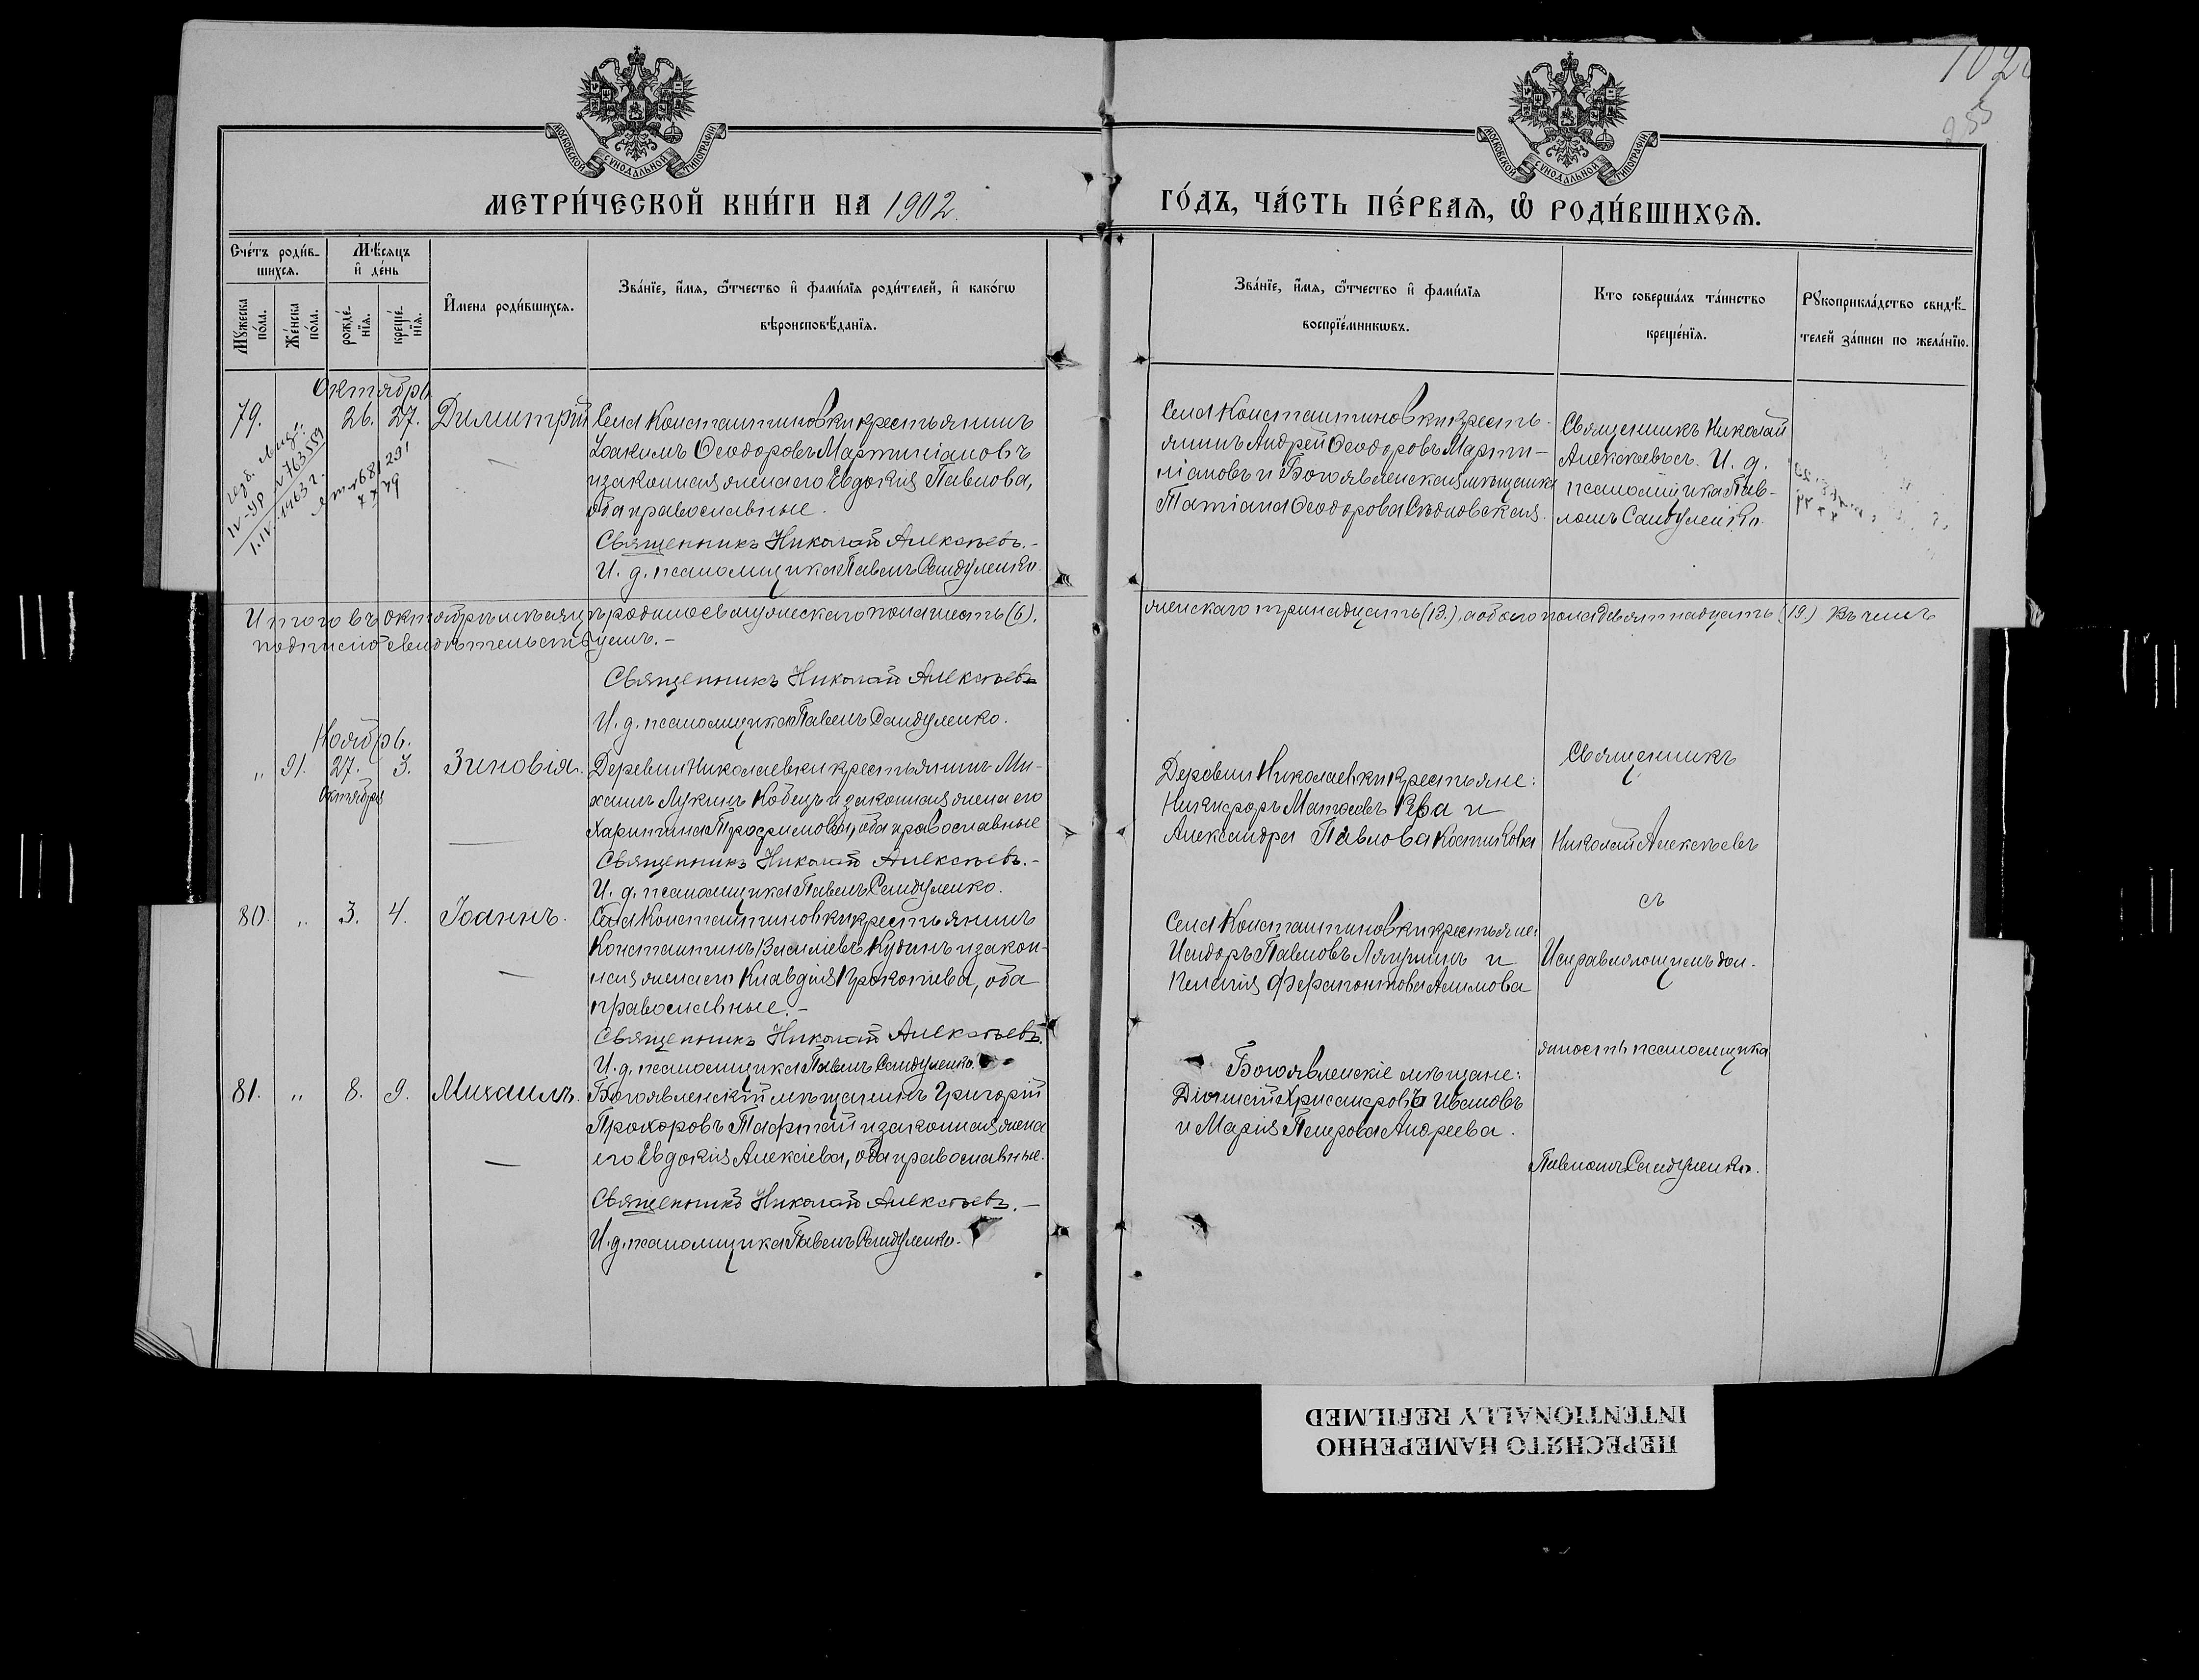 1020
255
МОСКОВСКОЙ СѴНОДАЛЬНОЙ ТИПОГРАФІИ
МОСКОВСКОЙ СѴНОДАЛЬНОЙ ТИПОГРАФІИ
МЕТРИ́ЧЕСКОЙ КНИ́ГИ НА 1902.
ГО́ДЪ, ЧА́СТЬ ПЕ́РВАѦ, Ѡ҆ РОДИ́ВШИХСѦ.
Сче́тъ роди́в-
шихсѧ.
Мꙋжеска
по́ла.
Же́нска
по́ла.
Мѣ́сѧцъ
и҆ де́нь
рожде́-
нїѧ.
креще́-
нїѧ.
И҆мена роди́вшихсѧ.
Зва́нїе, и҆́мѧ, ѻ҆́тчество и҆ фами́лїѧ роди́телей, и҆ како́гѡ
вѣроисповѣ́данїѧ.
Зва́нїе, и҆́мѧ, ѻ҆́тчество и҆ фами́лїѧ
воспрїе́мникѡвъ.
Кто соверша́лъ та́инство
креще́нїѧ.
Рꙋкоприкла́дство свидѣ́-
телей за́писи по жела́нїю.
Октябрь
79.
26. 27.
Димитрій
Села Константиновки крестьянинъ
Іоакимъ Ѳеодоровъ Мартиніановъ
и законная жена его Евдокія Павлова,
оба православные.
Священникъ Николай Алексѣевъ.-
И. д. псаломщика Павелъ Сандуленко.
Села Константиновки кресть-
янинъ Андрей Ѳеодоровъ Марти-
ніановъ и Богоявленская мѣщанка
Татіана Ѳеодорова
Священникъ Николай
Алексѣевъ съ И. д.
псаломщика Пав-
ломъ Сандуленко.
IV-УР № 763559
1.IV.1963 г.
681291
Итого въ октябрѣ мѣсяцѣ родилось мужескаго пола шесть (6),
женскаго тринадцать (13.), а обоего пола девятнадцать (19.) Въ чемъ
подписью свидѣтельствуемъ.-
Священникъ Николай Алексѣевъ
И. д. псаломщика Павелъ Сандуленко.
Ноябрь.
„ 91. 27. 3.
Октября
Зиновія.
Деревни Николаевки крестьянинъ Ми-
хаилъ Лукинъ Кобецъ и законная жена его
Харитина Трофимова, оба православные
Священникъ Николай Алексѣевъ.-
И. д. псаломщика Павелъ Сандуленко.
Деревни Николаевки крестьяне:
Никифоръ Матѳеевъ Рева и
Александра Павлова
Священникъ
Николай Алексѣевъ
съ
Исправляющимъ дол-
жность псаломщика
Павломъ Сандуленко.
80. „ 3. 4.
Іоаннъ.
Села Константиновки крестьянинъ
Константинъ Василіевъ Кудинъ и закон-
ная жена его Клавдія Прокопіева, оба
православные.-
Священникъ Николай Алексѣевъ.
И. д. псаломщика Павелъ Сандуленко.
Села Константиновки крестьяне:
Исидоръ Павловъ Лягушинъ и
Келестія Ферапонтова Алимова
81. „ 8. 9.
Михаилъ.
Богоявленскій мѣщанинъ Григорій
Прохоровъ Тафтай и законная жена
его Евдокія Алексіева, оба православные.
Священникъ Николай Алексѣевъ.-
И. д. псаломщика Павелъ Сандуленко.
Богоявленскіе мѣщане:
Діонисій Хрисанфовъ Ивановъ
и Марія Петрова Андреева.
ПЕРЕСНЯТО НАМЕРЕННО
INTENTIONALLY REFILMED